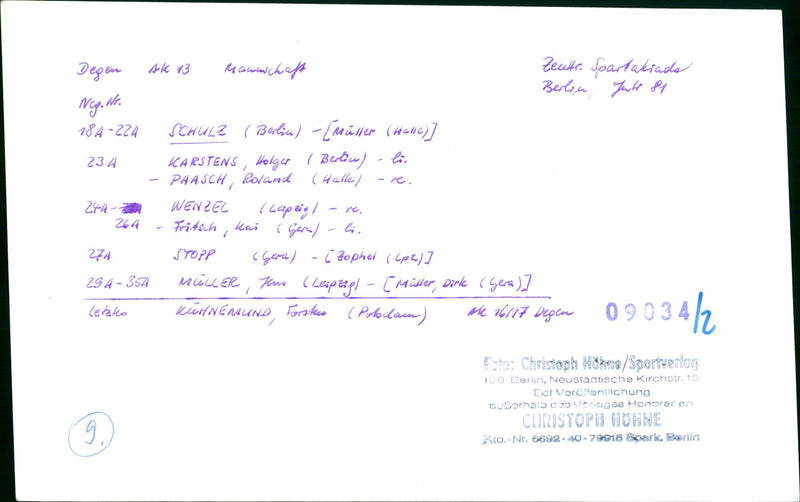 Degen AK 13 Mannschaft
Zentr. Spartakiade
Berlin, Juli 81
Neg. Nr.
18A-22A SCHULZ (Berlin) - [Müller (Halle)]
23A KARSTENS, Holger (Berlin) - li.
- PAASCH, Roland (Halle) - re.
24A- WENZEL (Leipzig) - re.
26A - Fritsch, Kai (Gera) - li.
27A STOPP (Gera) - [Zophel (Lpz)]
29A-35A MÜLLER, Jens (Leipzig) - [Müller, Dirk (Gera)]
letzte KÜHNEMUND, Torsten (Potsdam) AK 16/17 Degen
09034/2
Foto: Christoph Höhne/Sportverlag
100 Berlin, Neustädtische Kirchstr. 15
Bei Veröffentlichung
außerhalb des Verlages Honorar an
CHRISTOPH HÖHNE
Kto.-Nr. 6692-40-79915 Spark. Berlin
9.